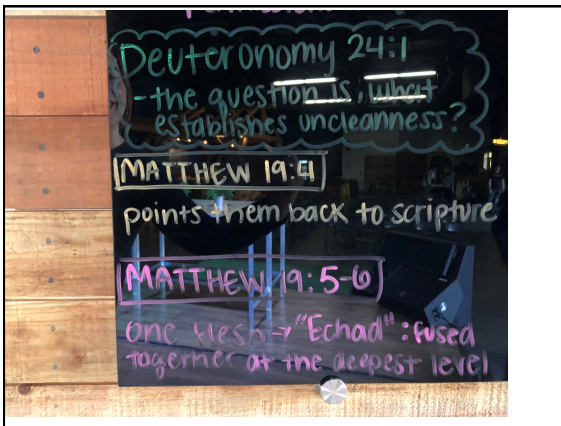 Deuteronomy 24:1
- the question is, what
establishes uncleanness?
MATTHEW 19:4
points them back to scripture
MATTHEW 19:5-6
one flesh → "Echad": fused
together at the deepest level